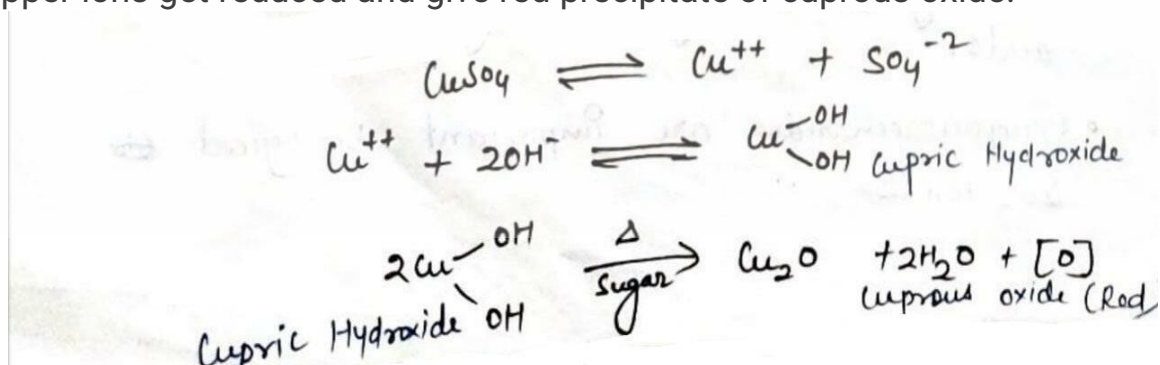 pper ions get reduced and give red precipitate of cuprous oxide.
CuSO4 ⇌ Cu++ + SO4-2
Cu++ + 2OH- ⇌ Cu OH OH Cupric Hydroxide
2Cu OH OH Δ Sugar → Cu2O + 2H2O + [O]
Cupric Hydroxide cuprous oxide (Red)